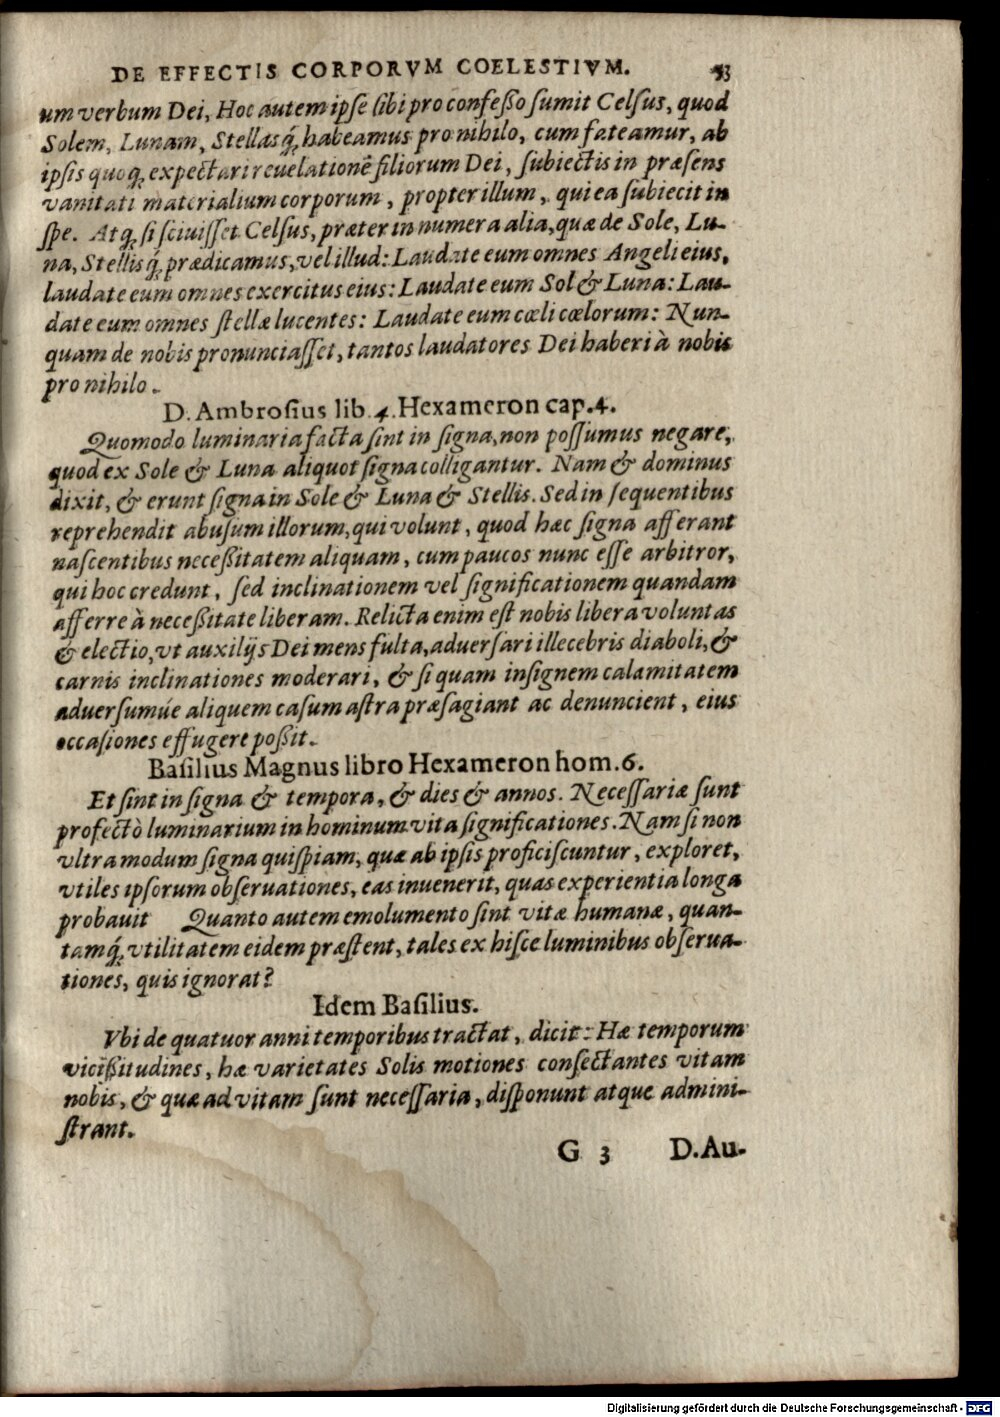 DE EFFECTIS CORPORVM COELESTIVM. 53
um verbum Dei, Hoc autem ipſe ſibi pro confeßo ſumit Celſus, quod
Solem, Lunam, Stellasq́; habeamus pro nihilo, cum fateamur, ab
ipſis quoq; expectari reuelationẽ filiorum Dei, ſubiectis in præſens
vanitati materialium corporum, propter illum, qui ea ſubiecit in
ſpe. Atq; ſi ſciuiſſet Celſus, præter innumera alia, quæ de Sole, Lu-
na, Stellisq́; prædicamus, vel illud: Laudate eum omnes Angeli eius,
laudate eum omnes exercitus eius: Laudate eum Sol & Luna: Lau-
date eum omnes ſtellæ lucentes: Laudate eum cœli cœlorum: Nun-
quam de nobis pronunciaſſet, tantos laudatores Dei haberi à nobis
pro nihilo.
D. Ambroſius lib. 4. Hexameron cap. 4.
Quomodo luminaria facta ſint in ſigna, non poſſumus negare,
quod ex Sole & Luna aliquot ſigna colligantur. Nam & dominus
dixit, & erunt ſigna in Sole & Luna & Stellis. Sed in ſequentibus
reprehendit abuſum illorum, qui volunt, quod hæc ſigna afferant
naſcentibus neceßitatem aliquam, cum paucos nunc eſſe arbitror,
qui hoc credunt, ſed inclinationem vel ſignificationem quandam
afferre à neceßitate liberam. Relicta enim eſt nobis libera voluntas
& electio, vt auxilijs Dei mens fulta, aduerſari illecebris diaboli, &
carnis inclinationes moderari, & ſi quam inſignem calamitatem
aduerſumúe aliquem caſum aſtra præſagiant ac denuncient, eius
occaſiones effugere poßit.
Baſilius Magnus libro Hexameron hom. 6.
Et ſint in ſigna & tempora, & dies & annos. Neceſſariæ ſunt
profectò luminarium in hominum vita ſignificationes. Nam ſi non
vltra modum ſigna quiſpiam, quæ ab ipſis proficiſcuntur, exploret,
vtiles ipſorum obſeruationes, eas inuenerit, quas experientia longa
probauit Quanto autem emolumento ſint vitæ humanæ, quan-
tamq́; vtilitatem eidem præſtent, tales ex hiſce luminibus obſerua-
tiones, quis ignorat?
Idem Baſilius.
Vbi de quatuor anni temporibus tractat, dicit: Hæ temporum
vicißitudines, hæ varietates Solis motiones conſectantes vitam
nobis, & quæ ad vitam ſunt neceſſaria, diſponunt atque admini-
ſtrant.
G 3 D. Au-
Digitalisierung gefördert durch die Deutsche Forschungsgemeinschaft - DFG